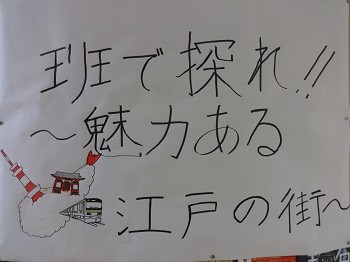 班で探れ!!
～魅力ある
江戸の街～